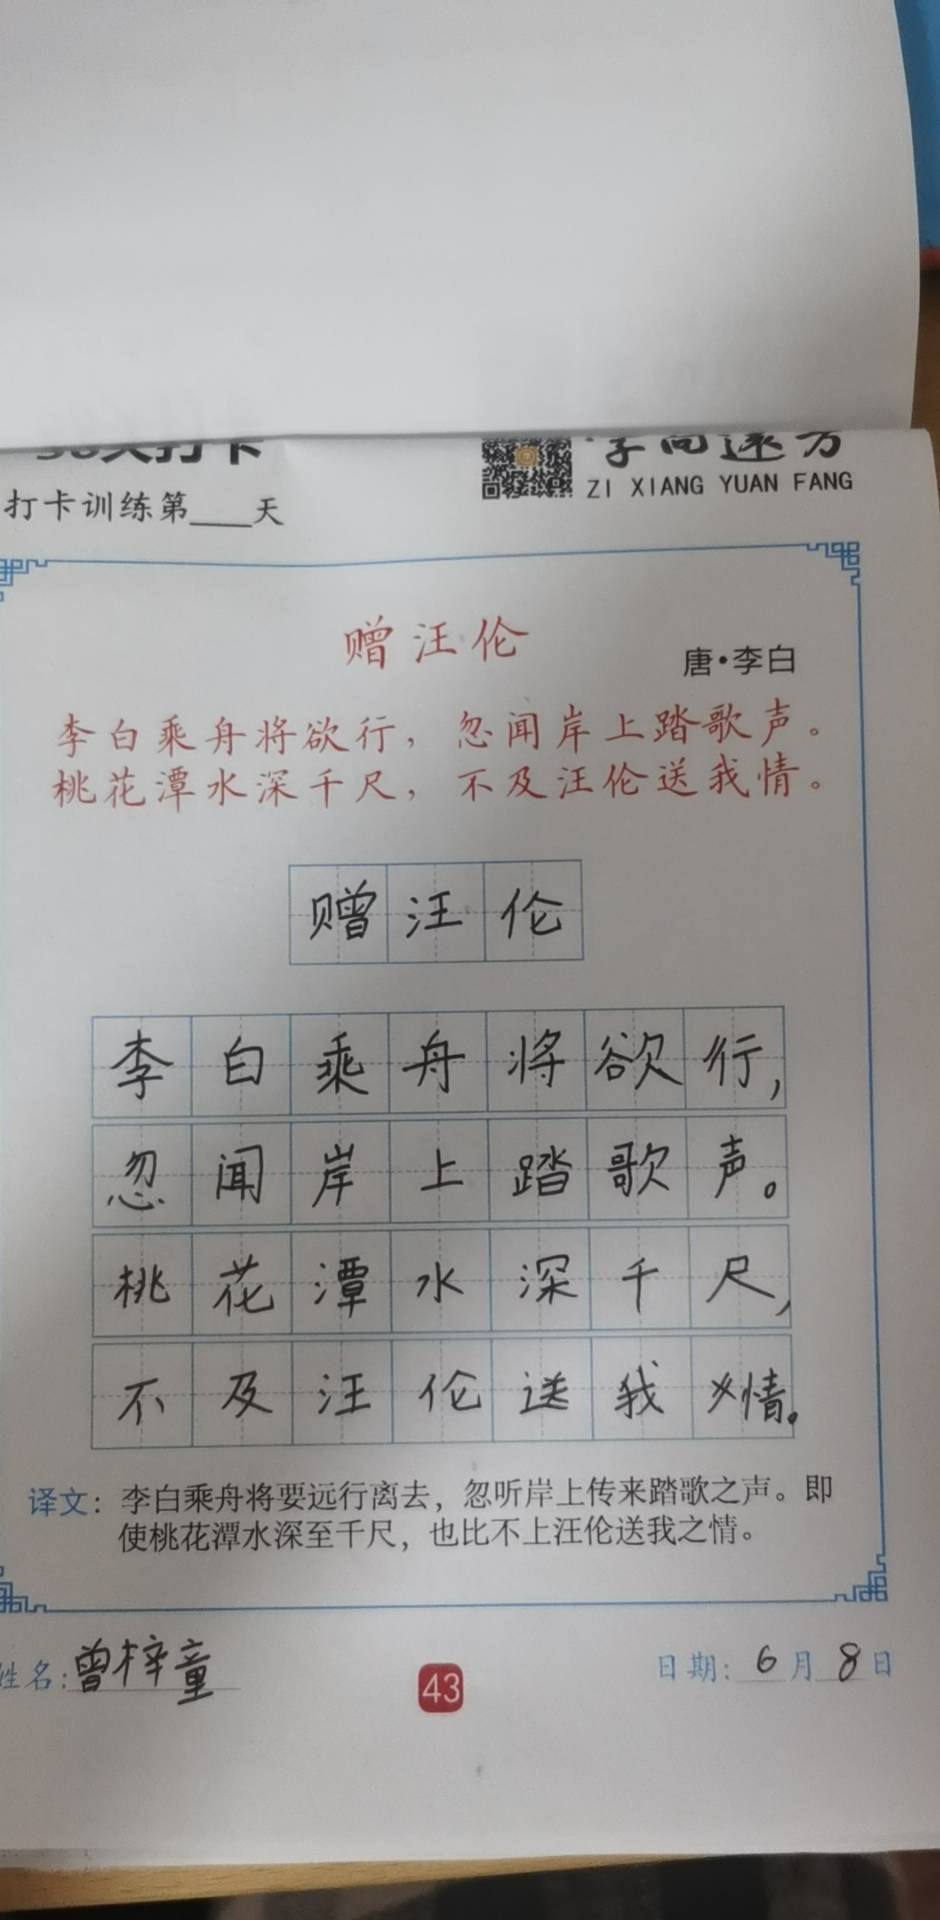 天打卡
字向远方
ZI XIANG YUAN FANG
打卡训练第____天
赠汪伦
唐·李白
李白乘舟将欲行，忽闻岸上踏歌声。
桃花潭水深千尺，不及汪伦送我情。
赠汪伦
李白乘舟将欲行，
忽闻岸上踏歌声。
桃花潭水深千尺，
不及汪伦送我情。
译文：李白乘舟将要远行离去，忽听岸上传来踏歌之声。即
使桃花潭水深至千尺，也比不上汪伦送我之情。
姓名：曾梓童
43
日期：6月8日